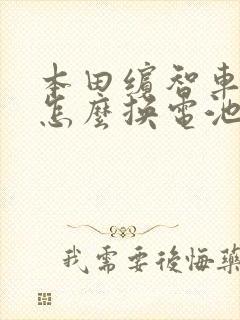 本田繽智車
怎麼換電池
我需要後悔藥